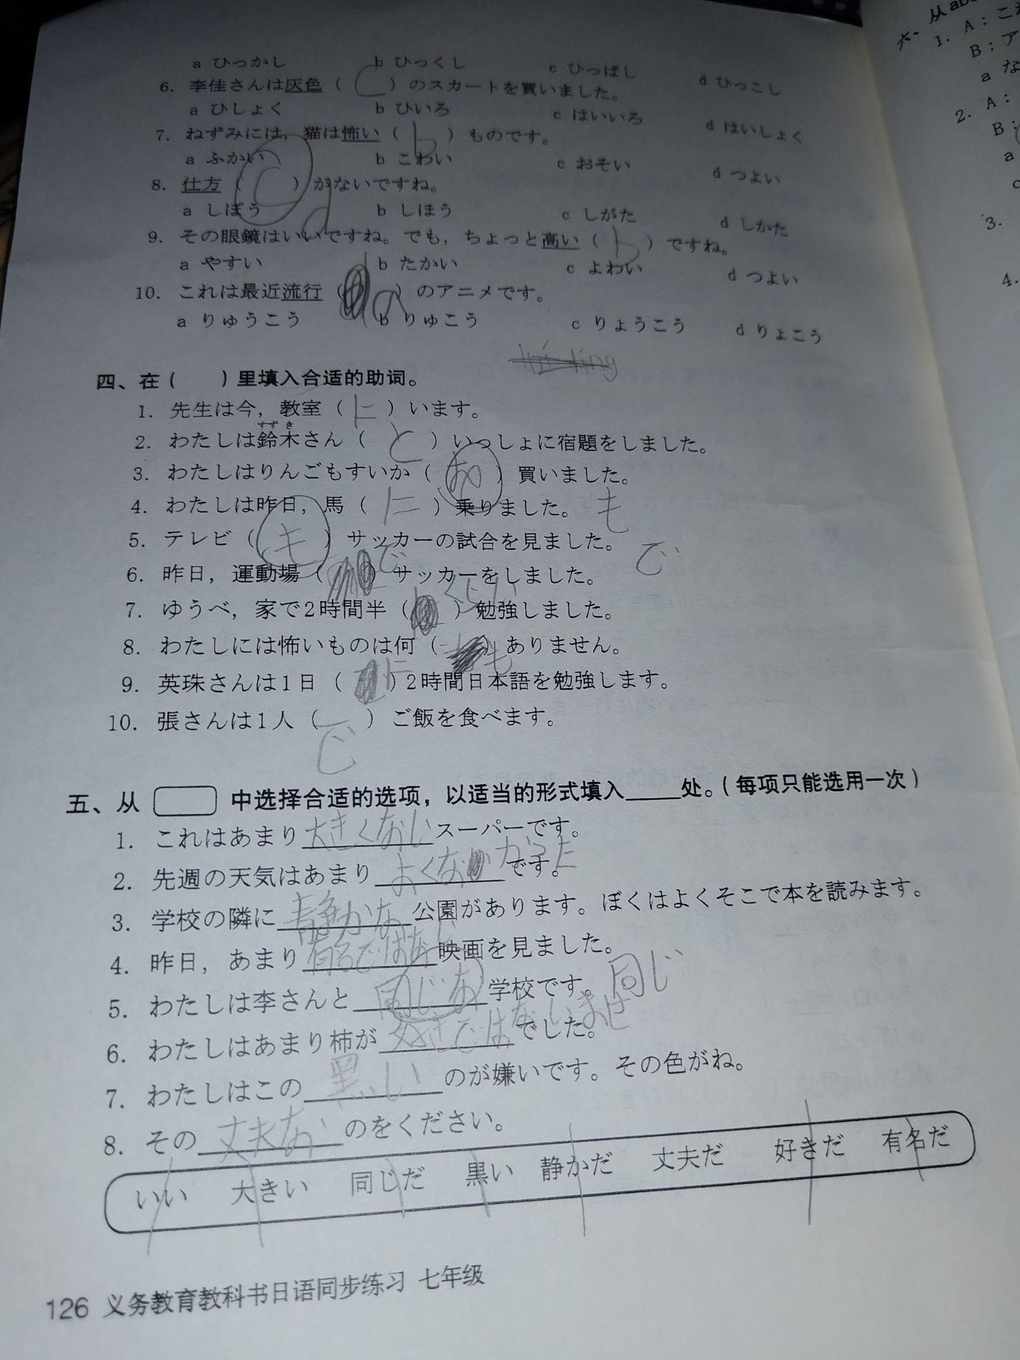 a ひっかし b ひっくし c ひっぱし d ひっこし
6. 李佳さんは灰色（ C ）のスカートを買いました。
a ひしょく b ひいろ c はいいろ d はいしょく
7. ねずみには，猫は怖い（ b ）ものです。
a ふかい b こわい c おそい d つよい
8. 仕方（ C ）がないですね。 d
a しぼう b しほう c しがた d しかた
9. その眼鏡はいいですね。でも，ちょっと高い（ b ）ですね。
a やすい b たかい c よわい d つよい
10. これは最近流行（ a ）のアニメです。
a りゅうこう b りゅこう c りょうこう d りょこう
四、在（ ）里填入合适的助词。
1. 先生は今，教室（ に ）います。
すずき
2. わたしは鈴木さん（ と ）いっしょに宿題をしました。
3. わたしはりんごもすいか（ ）買いました。
4. わたしは昨日，馬（ に ）乗りました。 も
5. テレビ（ も ）サッカーの試合を見ました。 で
6. 昨日，運動場（ で ）サッカーをしました。
7. ゆうべ，家で2時間半（ くらい ）勉強しました。
8. わたしには怖いものは何（ も ）ありません。
9. 英珠さんは1日（ に ）2時間日本語を勉強します。
10. 張さんは1人（ で ）ご飯を食べます。
五、从 中选择合适的选项，以适当的形式填入____处。（每项只能选用一次）
1. これはあまり大きくないスーパーです。
2. 先週の天気はあまりよくなかったです。
3. 学校の隣に静かな公園があります。ぼくはよくそこで本を読みます。
4. 昨日，あまり有名ではない映画を見ました。
5. わたしは李さんと同じな学校です。 同じ
6. わたしはあまり柿が好きではないませでした。
7. わたしはこの黒いのが嫌いです。その色がね。
8. その丈夫なのをください。
いい 大きい 同じだ 黒い 静かだ 丈夫だ 好きだ 有名だ
126 义务教育教科书日语同步练习 七年级